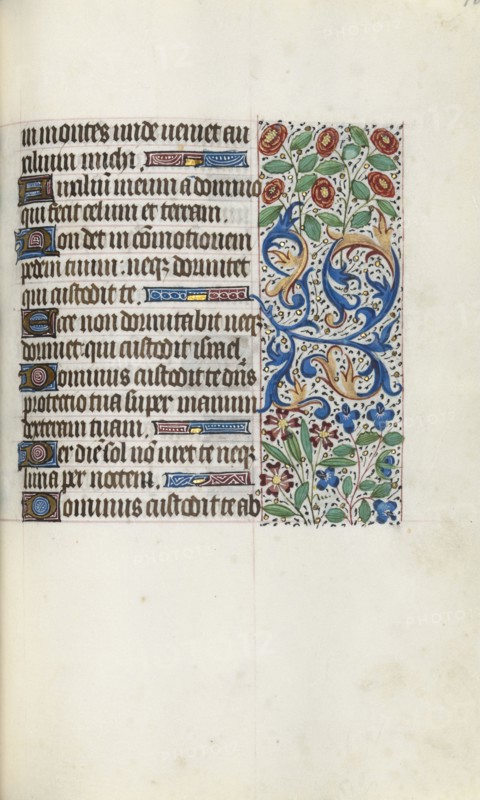 in montes unde veniet au
xilium michi.
Auxiliu meum a domino
qui fecit celum et terram.
Non det in comotionem
pedem tuum: neqz dormitet
qui custodit te.
Ecce non dormitabit neqz
dormiet: qui custodit israel.
Dominus custodit te dns
protectio tua super manum
dexteram tuam.
Per die sol no uret te neqz
luna per noctem.
Dominus custodit te ab